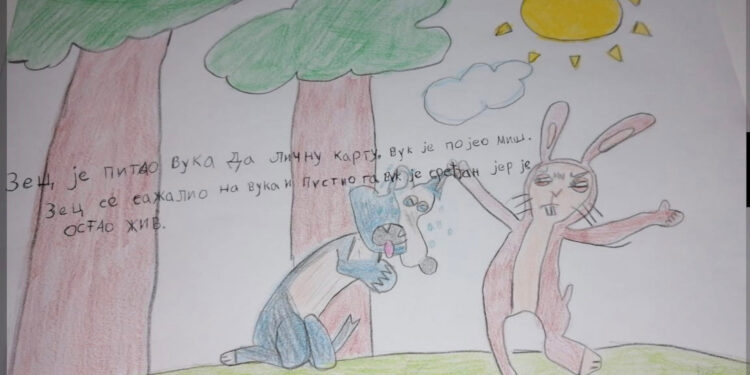 Зец, је питао вука да личну карту. Вук је појео миш.
Зец се сажалио на вука и пустио га вук је срећан јер је
остао жив.